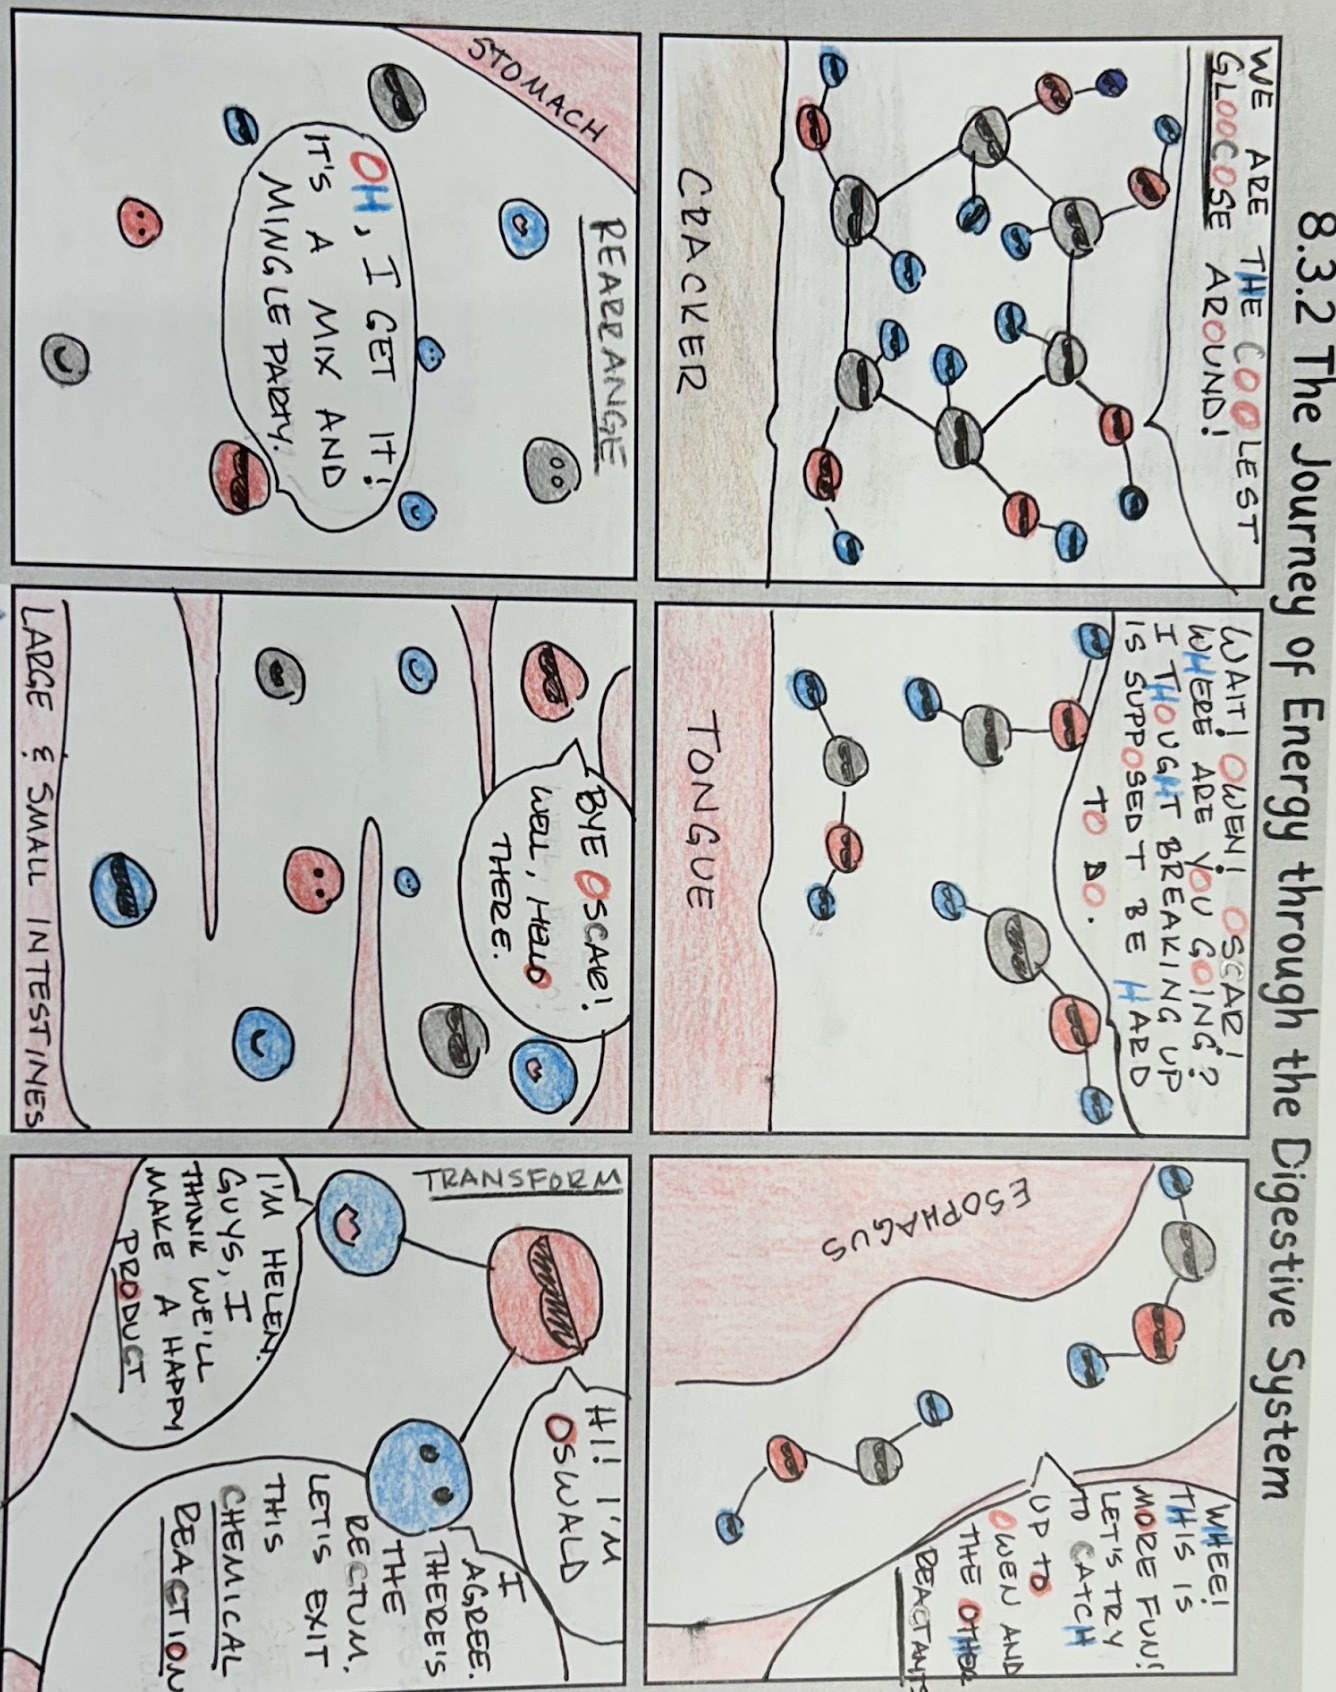 8.3.2 The Journey of Energy through the Digestive System
WE ARE THE COOLEST
GLOOCOSE AROUND!
CRACKER
WAIT! OWEN! OSCAR!
WHERE ARE YOU GOING?
I THOUGHT BREAKING UP
IS SUPPOSED T BE HARD
TO DO.
TONGUE
WHEE!
THIS IS
MORE FUN!
LET'S TRY
TO CATCH
UP TO
OWEN AND
THE OTHER
REACTANTS
ESOPHAGUS
STOMACH
REARRANGE
OH, I GET IT!
IT'S A MIX AND
MINGLE PARTY.
BYE OSCAR!
WELL, HELLO
THERE.
LARGE & SMALL INTESTINES
TRANSFORM
HI! I'M
OSWALD
I'M HELEN.
GUYS, I
THINK WE'LL
MAKE A HAPPY
PRODUCT
I
AGREE.
THERE'S
THE
RECTUM.
LET'S EXIT
THIS
CHEMICAL
REACTION